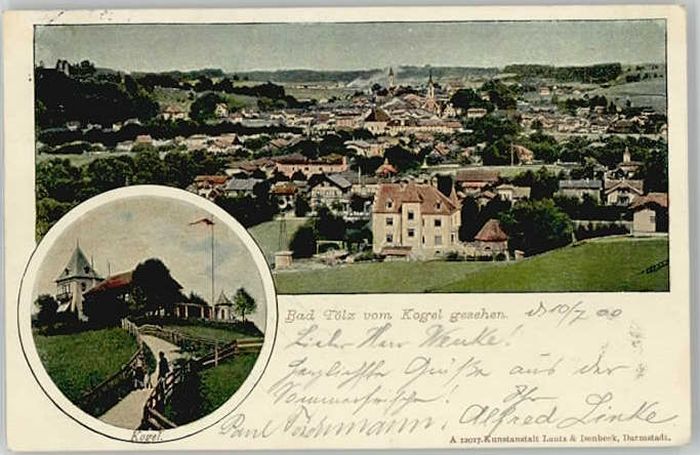 Bad Tölz vom Kogel gesehen. d. 10/7 00
Lieber Herr Wenke!
Herzlichste Grüße aus der
Sommerfrische! Ihr
Paul Alfred Linke
Kogel.
A 12017. Kunstanstalt Lautz & Isenbeck, Darmstadt.